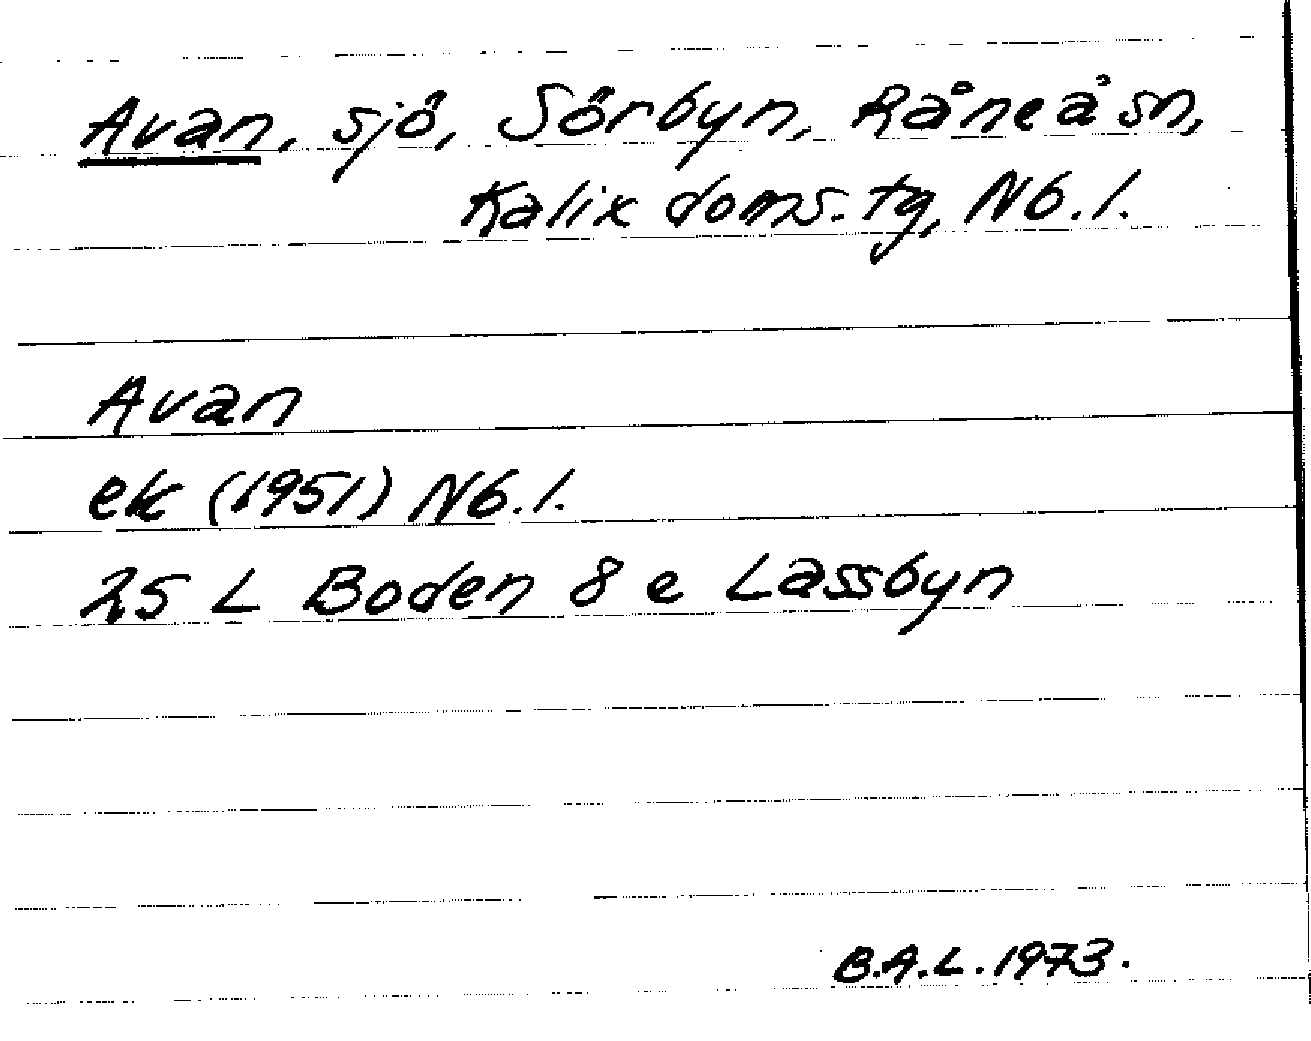 Avan, sjö, Sörbyn, Råneå sn,
Kalix doms. tg, Nb. l.
Avan
ek (1951) Nb. l.
25 L Boden 8 e Lassbyn
B.A.L. 1973.